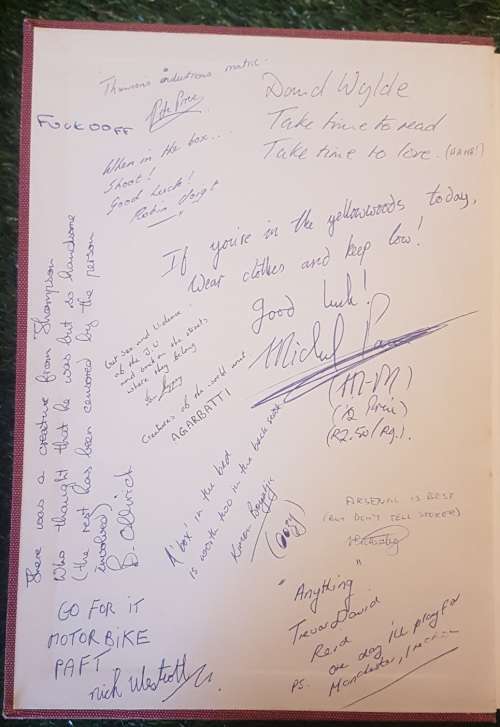 Pete Price
David Wylde
Take time to read
Take time to love. (HAHA!)
FUCKOOFF
When in the box...
Shoot!
Good luck!
Robin
If you're in the yellowwoods today,
Wear clothes and keep low!
Good luck!
Michael
(M-M)
(R2.50/Pg).
There was a creature from
Who thought that he was but so handsome
(the rest has been censored by the person
involved)
Get sex and violence
and back on the streets
where they belong
Creatures of the world and
AGARBATTI
A 'box' in the bed
is worth two in the back seat
ARSENAL IS BEST
(BUT DON'T TELL
"Anything"
Trevor David
Reid
PS. one day i'll play for
Manchester,
GO FOR IT
MOTORBIKE
PAFT
nick